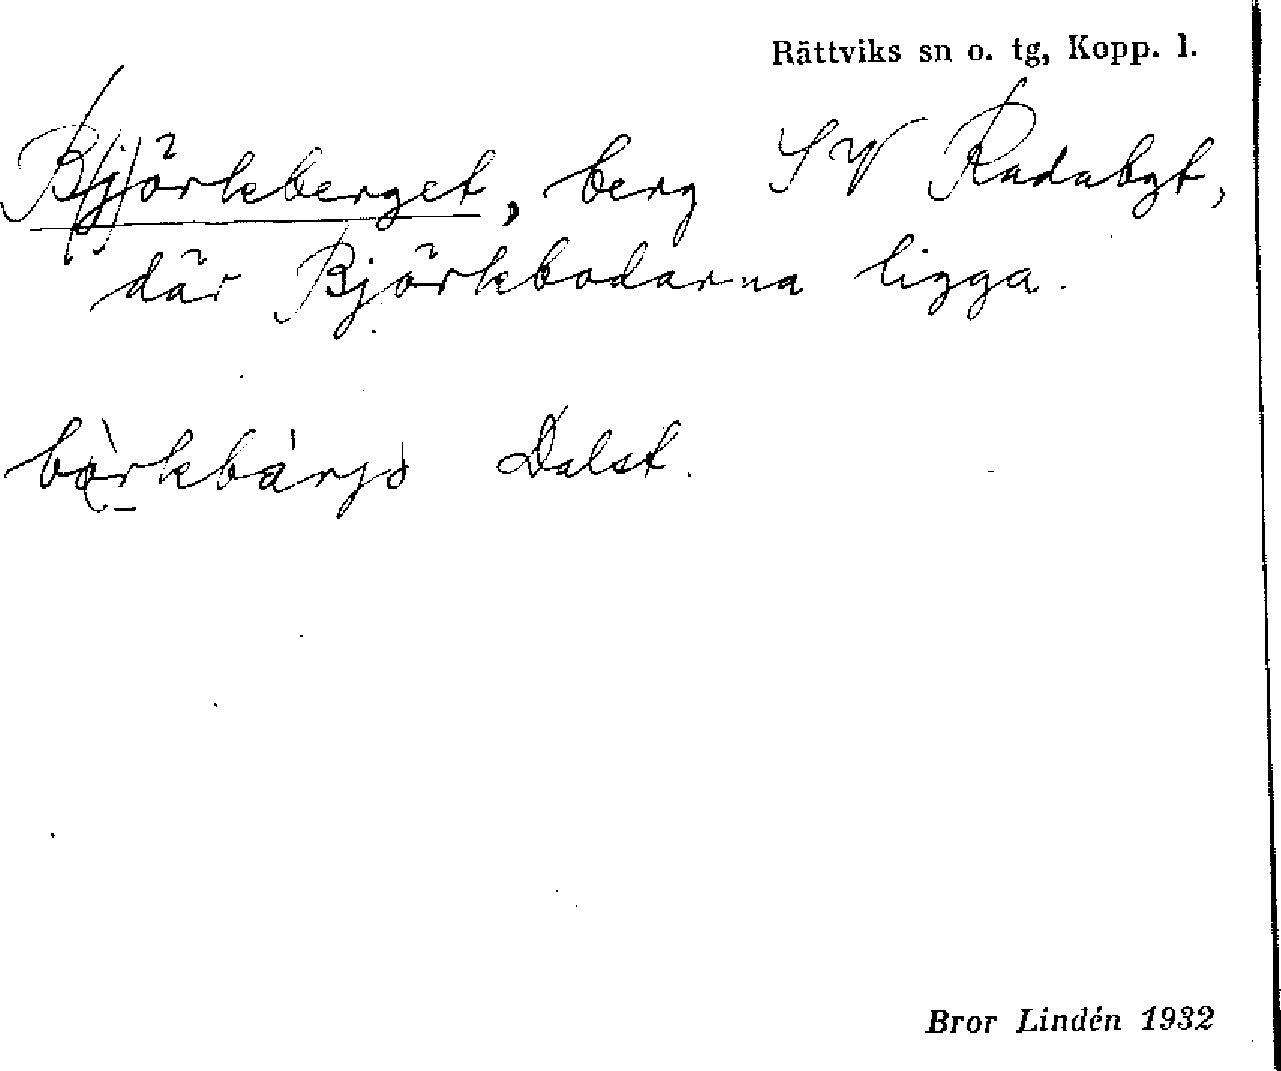 Rättviks sn o. tg, Kopp. l.
B(j)örkberget, berg SV Radabgt,
där Björkbodarna ligga.
Dalst.
Bror Lindén 1932